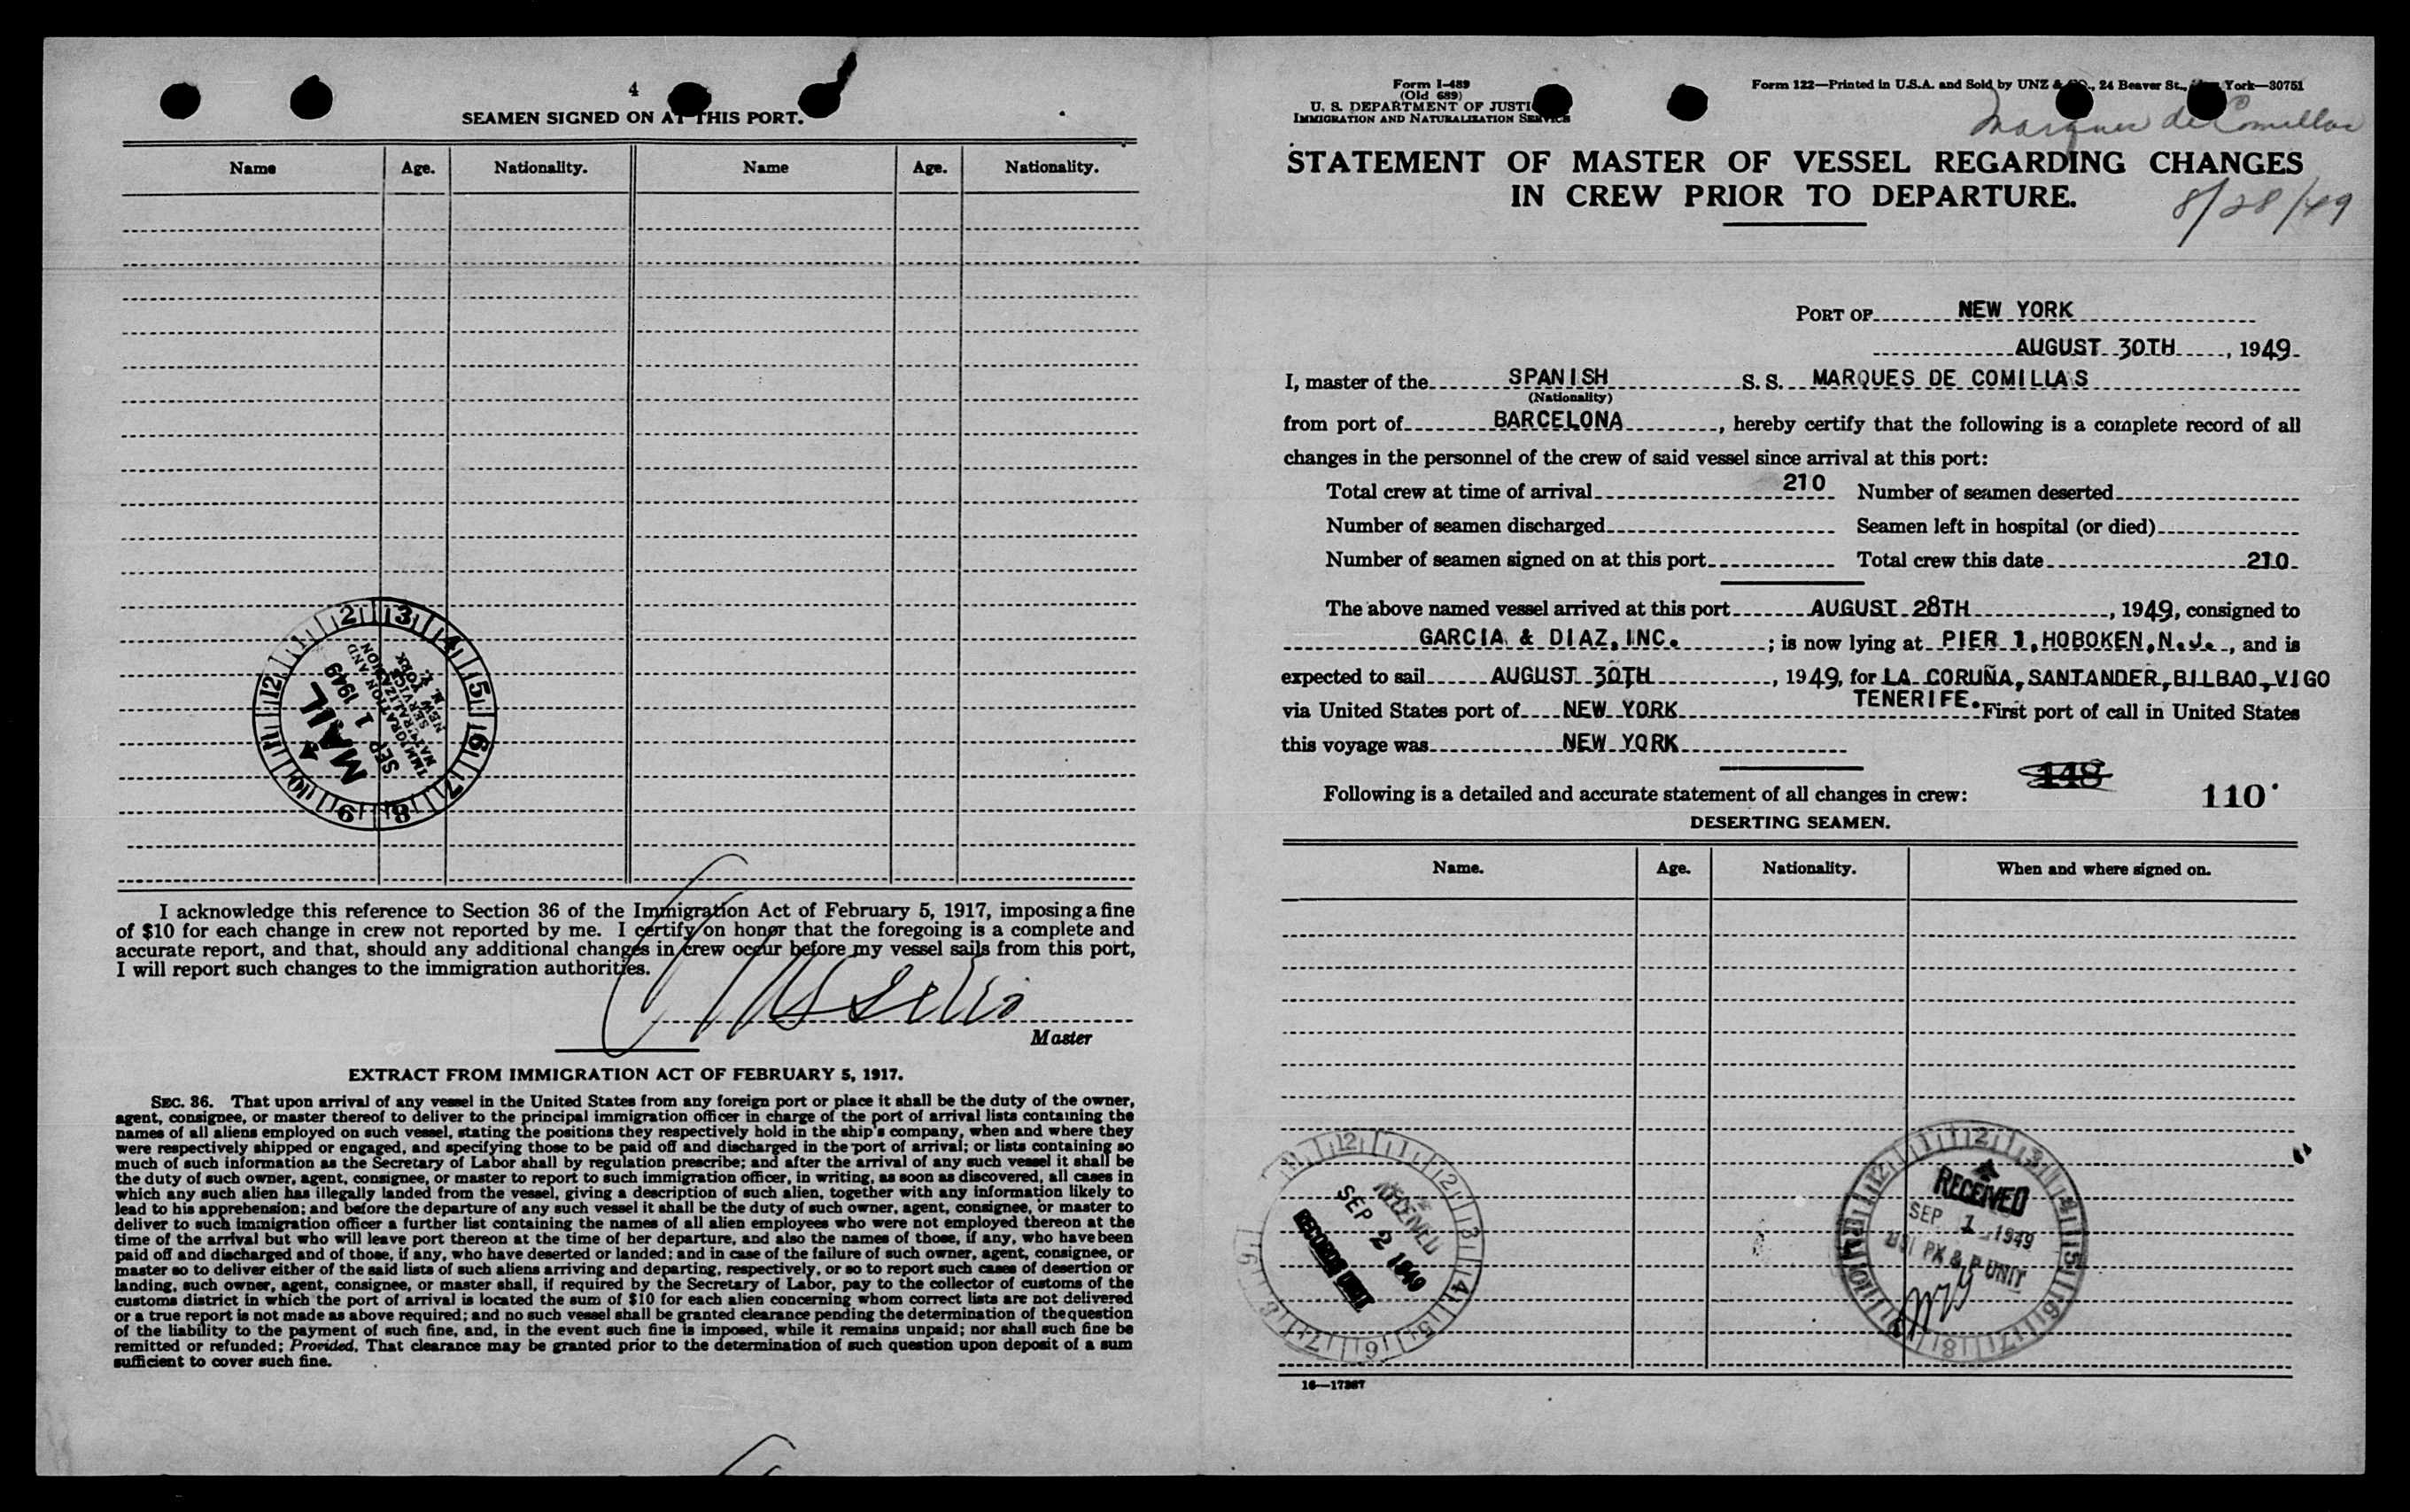 4
SEAMEN SIGNED ON AT THIS PORT.
Name Age. Nationality. Name Age. Nationality.
12 1 2 3 4 5 6 7 8 9 10 11
MAIL
SEP 1 1949
IMMIGRATION AND
NATURALIZATION
SERVICE
NEW YORK
N. Y.
I acknowledge this reference to Section 36 of the Immigration Act of February 5, 1917, imposing a fine
of $10 for each change in crew not reported by me. I certify on honor that the foregoing is a complete and
accurate report, and that, should any additional changes in crew occur before my vessel sails from this port,
I will report such changes to the immigration authorities.
Master
EXTRACT FROM IMMIGRATION ACT OF FEBRUARY 5, 1917.
SEC. 36. That upon arrival of any vessel in the United States from any foreign port or place it shall be the duty of the owner,
agent, consignee, or master thereof to deliver to the principal immigration officer in charge of the port of arrival lists containing the
names of all aliens employed on such vessel, stating the positions they respectively hold in the ship's company, when and where they
were respectively shipped or engaged, and specifying those to be paid off and discharged in the port of arrival; or lists containing so
much of such information as the Secretary of Labor shall by regulation prescribe; and after the arrival of any such vessel it shall be
the duty of such owner, agent, consignee, or master to report to such immigration officer, in writing, as soon as discovered, all cases in
which any such alien has illegally landed from the vessel, giving a description of such alien, together with any information likely to
lead to his apprehension; and before the departure of any such vessel it shall be the duty of such owner, agent, consignee, or master to
deliver to such immigration officer a further list containing the names of all alien employees who were not employed thereon at the
time of the arrival but who will leave port thereon at the time of her departure, and also the names of those, if any, who have been
paid off and discharged and of those, if any, who have deserted or landed; and in case of the failure of such owner, agent, consignee, or
master so to deliver either of the said lists of such aliens arriving and departing, respectively, or so to report such cases of desertion or
landing, such owner, agent, consignee, or master shall, if required by the Secretary of Labor, pay to the collector of customs of the
customs district in which the port of arrival is located the sum of $10 for each alien concerning whom correct lists are not delivered
or a true report is not made as above required; and no such vessel shall be granted clearance pending the determination of the question
of the liability to the payment of such fine, and, in the event such fine is imposed, while it remains unpaid; nor shall such fine be
remitted or refunded; Provided, That clearance may be granted prior to the determination of such question upon deposit of a sum
sufficient to cover such fine.
Form I-489
(Old 689)
U. S. DEPARTMENT OF JUSTI
IMMIGRATION AND NATURALIZATION SERVICE
Form 122—Printed in U.S.A. and Sold by UNZ & CO., 24 Beaver St., York—30751
Marques de Comillas
STATEMENT OF MASTER OF VESSEL REGARDING CHANGES
IN CREW PRIOR TO DEPARTURE.
8/28/49
PORT OF NEW YORK
AUGUST 30TH, 1949
I, master of the SPANISH S. S. MARQUES DE COMILLAS
(Nationality)
from port of BARCELONA, hereby certify that the following is a complete record of all
changes in the personnel of the crew of said vessel since arrival at this port:
Total crew at time of arrival 210 Number of seamen deserted
Number of seamen discharged Seamen left in hospital (or died)
Number of seamen signed on at this port Total crew this date 210
The above named vessel arrived at this port AUGUST 28TH, 1949, consigned to
GARCIA & DIAZ, INC.; is now lying at PIER 1, HOBOKEN, N.J., and is
expected to sail AUGUST 30TH, 1949, for LA CORUÑA, SANTANDER, BILBAO, VIGO
TENERIFE.
via United States port of NEW YORK First port of call in United States
this voyage was NEW YORK
148
Following is a detailed and accurate statement of all changes in crew: 110
DESERTING SEAMEN.
Name. Age. Nationality. When and where signed on.
RECEIVED
SEP 2 1949
RECORDS UNIT
RECEIVED
SEP 1 1949
PX & P UNIT
16—17367